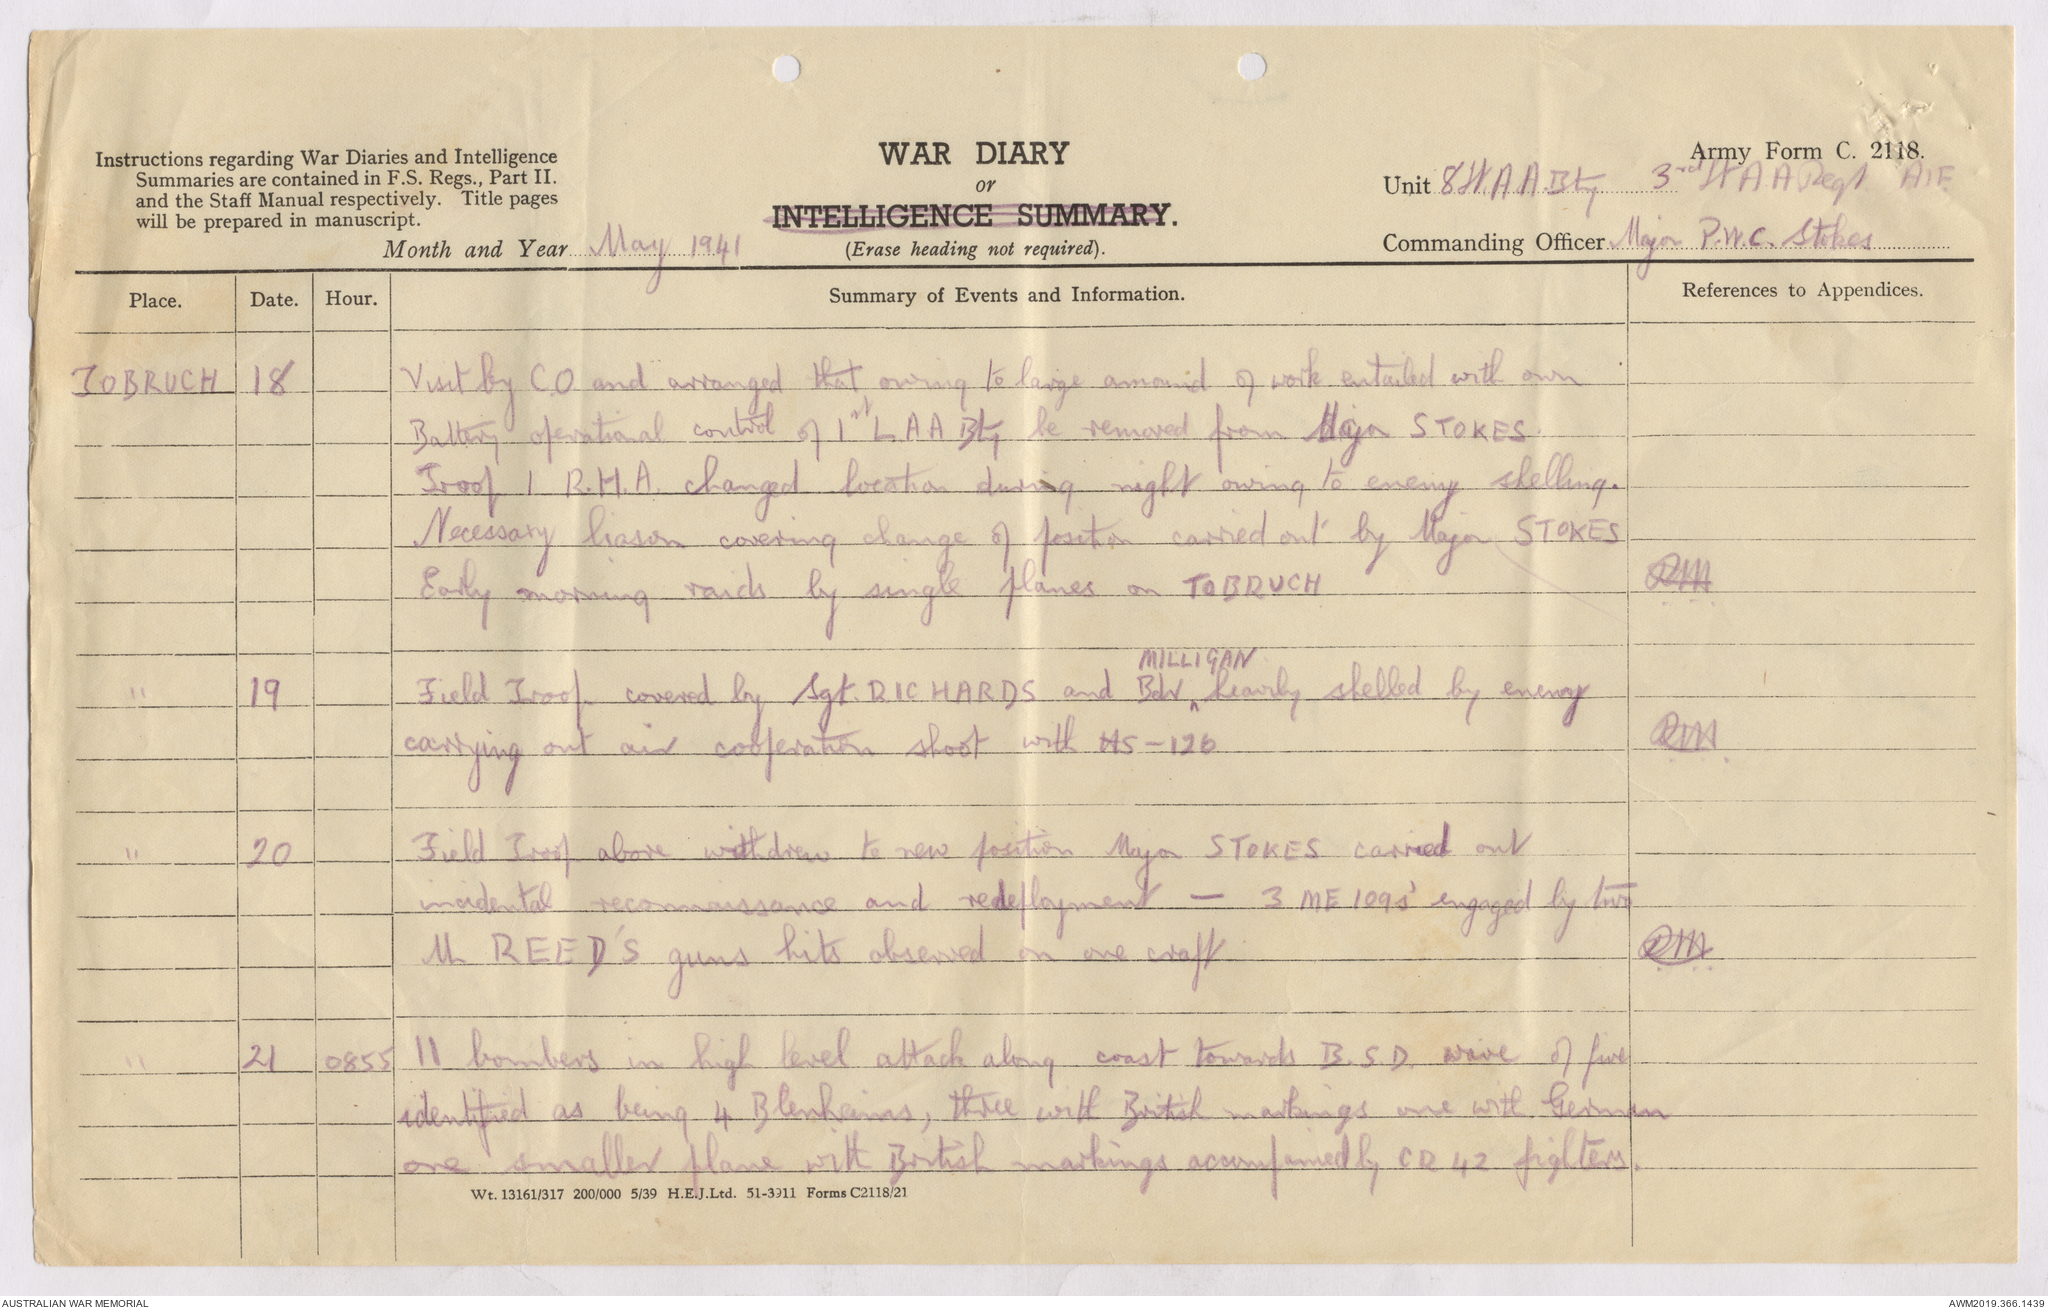 Instructions regarding War Diaries and Intelligence
Summaries are contained in F.S. Regs., Part II.
and the Staff Manual respectively. Title pages
will be prepared in manuscript.
Month and Year May 1941
WAR DIARY
or
INTELLIGENCE SUMMARY.
(Erase heading not required).
Army Form C. 2118.
Unit 8 Lt A A Bty 3rd Lt A A Regt AIF
Commanding Officer Major P.W.C. Stokes
Place. Date. Hour. Summary of Events and Information. References to Appendices.
TOBRUCH 18 Visit by C.O and arranged that owing to large amount of work entailed with own
Battery operational control of 1st L A A Bty be removed from Major STOKES.
Troop 1 R.H.A. changed location during night owing to enemy shelling.
Necessary liason covering change of position carried out by Major STOKES
Early morning raids by single planes on TOBRUCH
MILLIGAN
" 19 Field Troop covered by Sgt. RICHARDS and Bdr ^ heavily shelled by enemy
carrying out air cooperation shoot with HS-126
" 20 Field Troop above withdrew to new position Major STOKES carried out
incidental reconnaissance and redeployment — 3 ME 109s' engaged by two
Lt REED'S guns hits observed on one craft.
" 21 0855 11 bombers in high level attack along coast towards B.S.D. wave of five
identified as being 4 Blenheims, three with British markings one with German
one smaller plane with British markings accompanied by CR 42 fighters.
Wt. 13161/317 200/000 5/39 H.E.J.Ltd. 51-3911 Forms C2118/21
AUSTRALIAN WAR MEMORIAL
AWM2019.366.1439